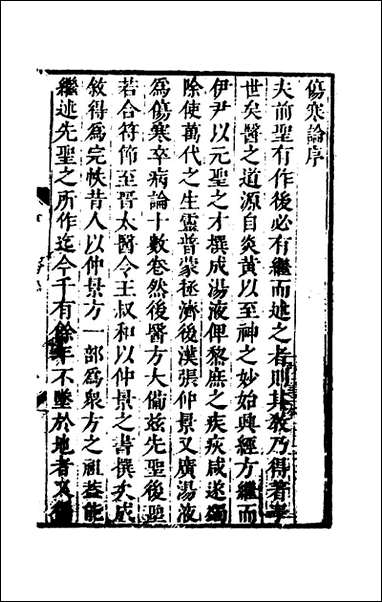 傷寒論序
夫前聖有作後必有繼而述之者則其教乃得著
世矣醫之道源自炎黃以至神之妙始興經方繼而
伊尹以元聖之才撰成湯液俾黎庶之疾疢咸遂蠲
除使萬代之生靈普蒙拯濟後漢張仲景又廣湯液
為傷寒卒病論十數卷然後醫方大備茲先聖後聖
若合符節至晉太醫令王叔和以仲景之書撰次成
敘得為完帙昔人以仲景方一部為眾方之祖蓋能
繼述先聖之所作迄今千有餘年不墜於地者又